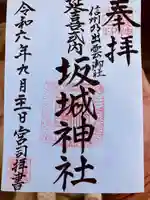 奉拝
信州乃出雲御社
延喜式内
坂城神社
令和六年九月二十三日
宮司拝書